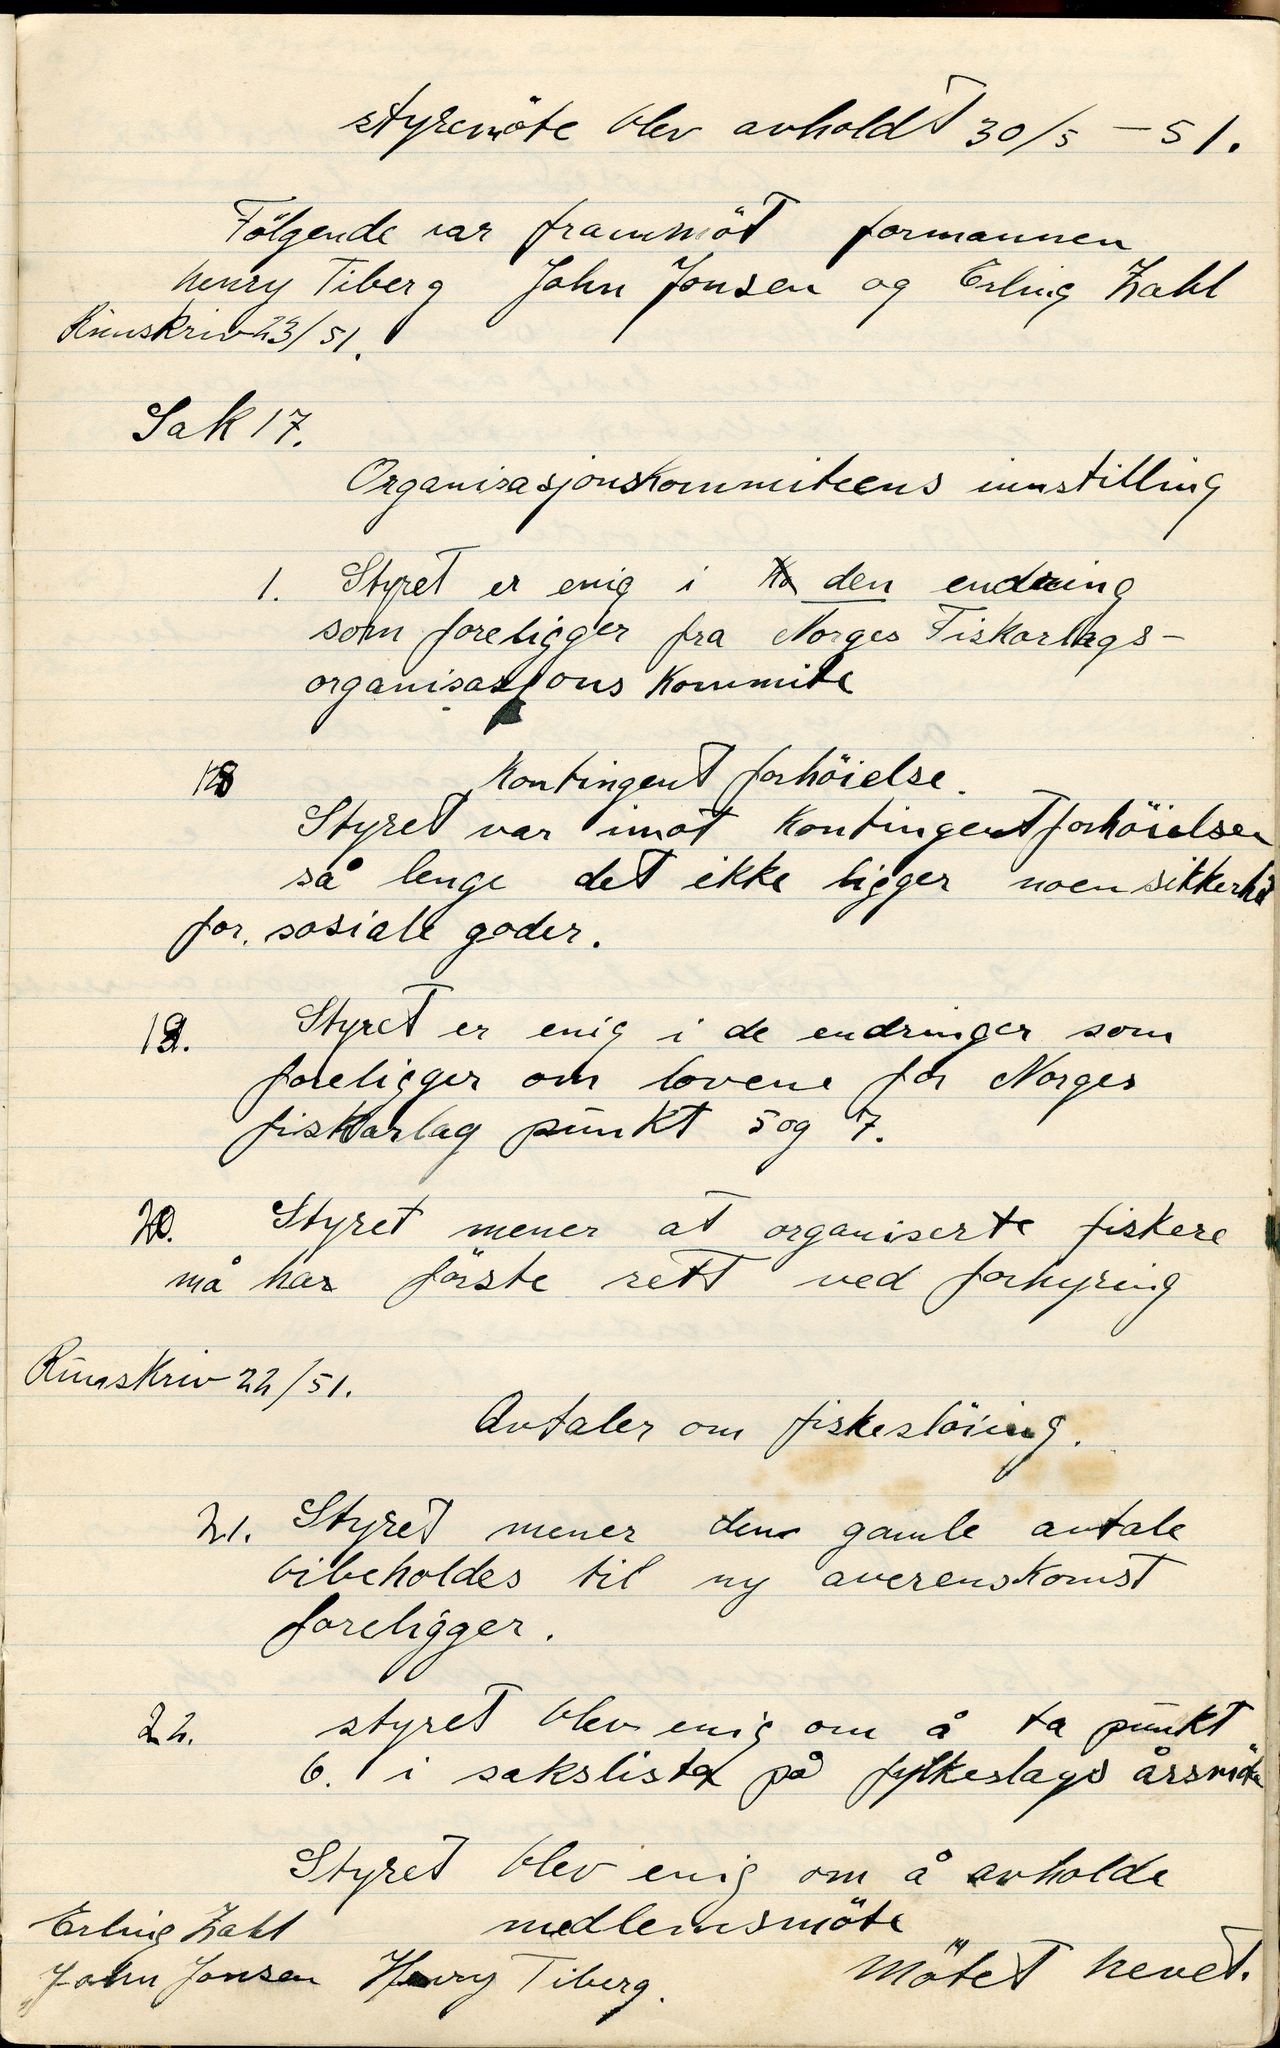 styremöte blev avholdt 30/5 – 51.
Fölgende var frammöt formannen
henry Tiberg John Jonsen og Erling Zahl
Runskriv 23/51.
Sak 17.
Organisasjonskommiteens innstilling
1. Styret er enig i den endring
som foreligger fra Norges Fiskarlags-
organisasjons kommite
18 Kontingent forhöielse.
Styret var imot Kontingentforhöielsen
så lenge det ikke ligger noen sikkerhet
for. sosiale goder.
19. Styret er enig i de endringer som
foreligger om lovene for Norges
fiskarlag punkt 5 og 7.
20. Styret mener at organiserte fiskere
må har förste rett ved forhyring
Runskriv 22/51.
Avtaler om fiskeslöiing.
21. Styret mener den gamle avtale
bibeholdes til ny averenskomst
foreligger.
22. styret blev enig om å ta punkt
6. i sakslista på fylkeslags årsmöte
Styret blev enig om å avholde
medlemsmöte
Erling Zahl
John Jonsen Henry Tiberg. Mötet hevet.